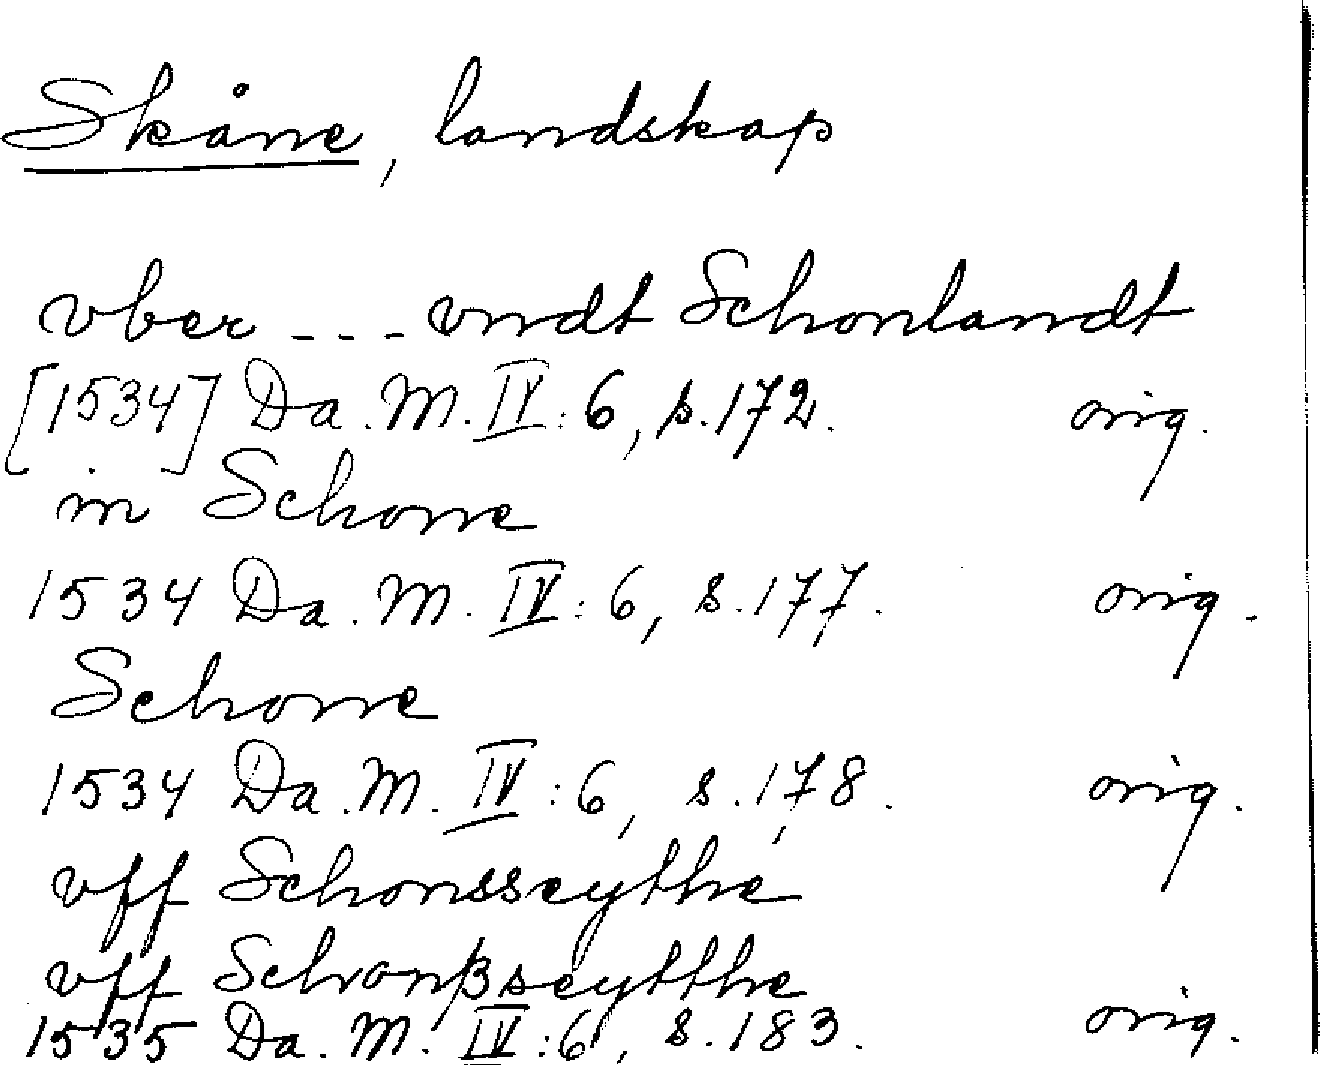 Skåne, landskap
vber --- vndt Schonlandt
[1534] Da. M. IV: 6, s. 172. orig.
in Schone
1534 Da. M. IV: 6, s. 177. orig.
Schone
1534 Da. M. IV: 6, s. 178. orig.
vff Schonsseythe
vff Schonßseytthe
1535 Da. M. IV: 6, s. 183. orig.